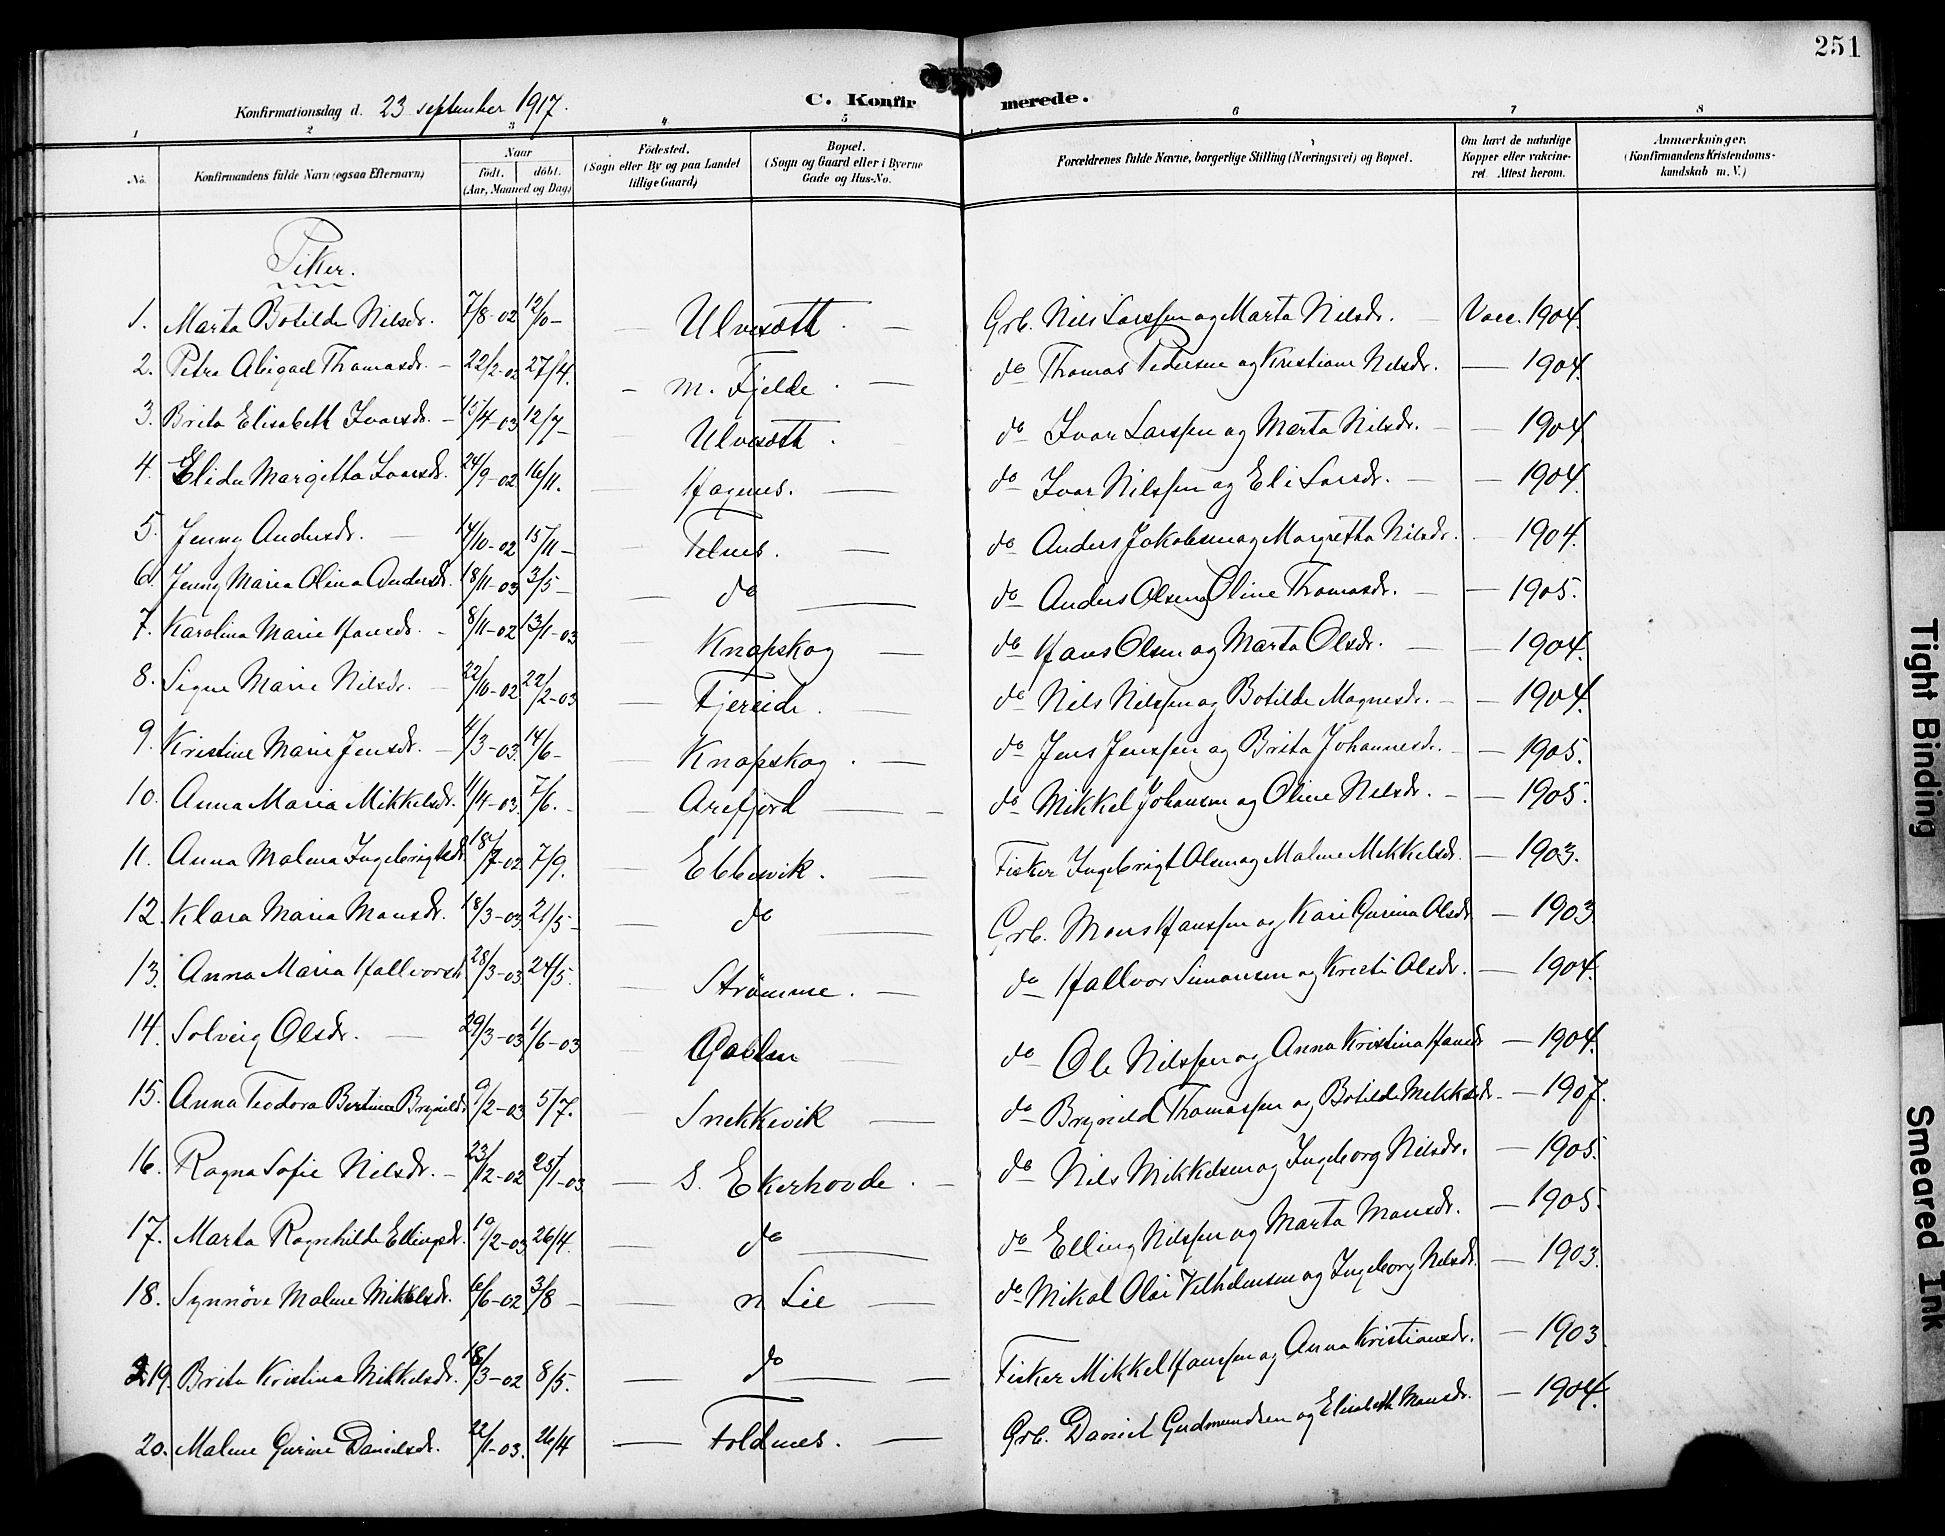 251
Konfirmationsdag d. 23 september 1917.
C. Konfirmerede.
1 2 3 4 5 6 7 8
No. Konfirmandens fulde Navn (ogsaa Efternavn) Naar født. døbt. (Aar, Maaned og Dag) Fødested. (Sogn eller By og paa Landet tillige Gaard) Bopæl. (Sogn og Gaard eller i Byerne Gade og Hus-No. Forældrenes fulde Navne, borgerlige Stilling (Næringsvei) og Bopæl. Om havt de naturlige Kopper eller vakcineret. Attest herom. Anmærkninger. (Konfirmandens Kristendomskundskab m. V.)
Piker.
1. Marta Botilde Nilsdr. 7/8-02 12/10- — Ulvesæth. — Grb. Nils Larssen og Marta Nilsdr. — Vacc. 1904.
2. Petra Abigael Thomasdr. - 22/2-02 27/4. - m. Fjelde. — do Thomas Pedersen og Kristiane Nilsdr. — 1904.
3. Brita Elisabeth Ivarsdr. - 15/4-03 12/7- Ulvesæth. do Ivar Larssen og Marta Nilsdr. - — 1904
4. Elida Margitta Ivarsdr. 24/9-02 16/11. — Hagenes. — do Ivar Nilssen og Eli Larsdr. — 1904.
5. Jenny Andersdr. — 14/10-02 15/11- — Telnes. — do Anders Jakobsen og Margretha Nilsdr. — 1904.
6. Jenny Maria Olina Andersdr. 18/11-03 3/5- — do — do Anders Olsen og Oline Thomasdr. — 1905.
7. Karolina Marie Hansdr. - 8/11-02 13/1-03 Knapskog — do Hans Olsen og Marta Olsdr. — 1904.
8. Signe Marie Nilsdr. — 22/10-02 22/2-03 — Fjereide. — do Nils Nilssen og Botilde Magnesdr. - — 1904.
9. Kristine Marie Jensdr. — 4/3-03. 14/6- — Knapskog. — do Jens Jenssen og Brita Johannesdr. - — 1905.
10. Anna Maria Mikkelsdr. 11/4-03. 7/6. — Arefjord — do Mikkel Johansen og Oline Nilsdr. - — 1905.
11. Anna Malena Ingebrigtsdr. 18/7-02 7/9. — Ebbesvik. — Fisker Ingebrigt Olsen og Malene Mikkelsdr. — 1903.
12. Klara Maria Monsdr. 18/3-03. 21/5- — do — Grb. Mons Hanssen og Kari Gurina Olsdr. — 1903
13. Anna Maria Hallvorsdr. 28/3-03. 24/5. — Strømme. — do Hallvor Simonsen og Kristi Olsdr. — 1904.
14. Solveig Olsdr. — 29/3-03 1/6-03 do Ole Nilssen og Anna Kristina Hansdr — 1904.
15. Anna Teodora Bertina Brynildsdr 9/2-03 5/7. — Snekkevik — do Brynild Thomassen og Botilde Mikkelsdr. — 1907.
16. Ragna Sofie Nilsdr. — 23/12-02 25/1-03 — S. Ekerhovde. — do Nils Mikkelsen og Ingeborg Nilsdr. — 1905.
17. Marta Ragnhilde Ellingsdr. 19/2-03 26/4. — do — do Elling Nilssen og Marta Monsdr. — 1905.
18. Synnøve Malene Mikalsdr. 6/6-02 3/8- — n Lie — do Mikal Olai Vilhelmsen og Ingeborg Nilsdr. — 1903.
19. Brita Kristina Mikkelsdr. 18/3-02 8/5. — do — Fisker Mikkel Hanssen og Anna Kristiansdr. — 1903
20. Malene Gurine Danielsdr. 22/1-03. 26/4 — Foldnes. — Grb. Daniel Gudmundsen og Elisabeth Monsdr. — 1904.
Tight Binding
Smeared Ink